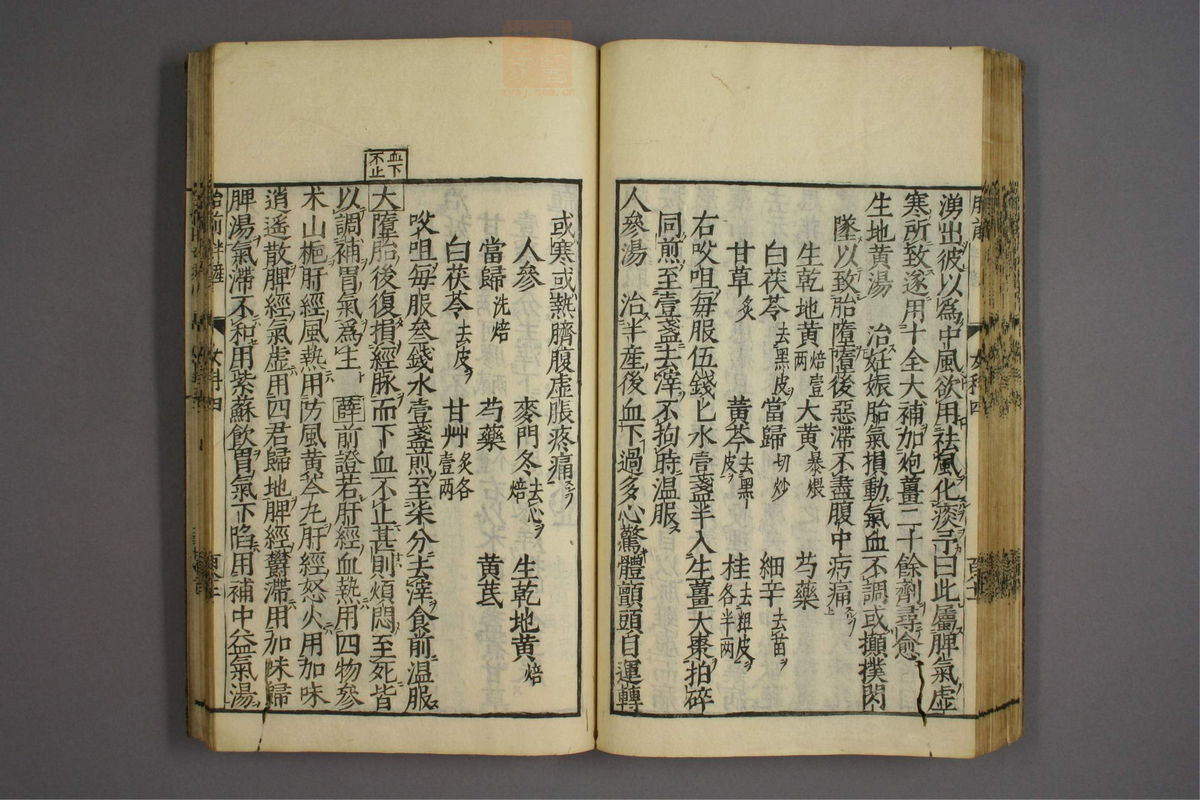 湧出彼以爲中風欲用祛風化痰予曰此屬脾氣虛
寒所致遂用十全大補加炮薑二十餘劑尋愈
生地黄湯　治妊娠胎氣損動氣血不調或攧撲閃
墜以致胎墮墮後惡滯不盡腹中㽲痛
生乾地黄焙壹两　大黄暴煨　芍藥
白茯苓去黑皮　當歸切炒　細辛去苗
甘草炙　黄芩去黑皮　桂去粗皮各半两
右㕮咀每服伍錢匕水壹盞半入生薑大棗拍碎
同煎至壹盞去滓不拘時温服
人參湯　治半産後血下過多心驚體顫頭目運轉
或寒或熱臍腹虛脹疼痛
人參　麥門冬去心焙　生乾地黄焙
當歸洗焙　芍藥　黄芪
白茯苓去皮　甘艸炙各壹两
㕮咀每服叁錢水壹盞煎至柒分去滓食前温服
血下不止
大墮胎後復損經脉而下血不止甚則煩悶至死皆
以調補胃氣爲主　薛前證若肝經血熱用四物參
术山梔肝經風熱用防風黄芩丸肝經怒火用加味
逍遥散脾經氣虛用四君歸地脾經欝滯用加味歸
脾湯氣滯不和用紫蘇飲胃氣下陷用補中益氣湯
女科四